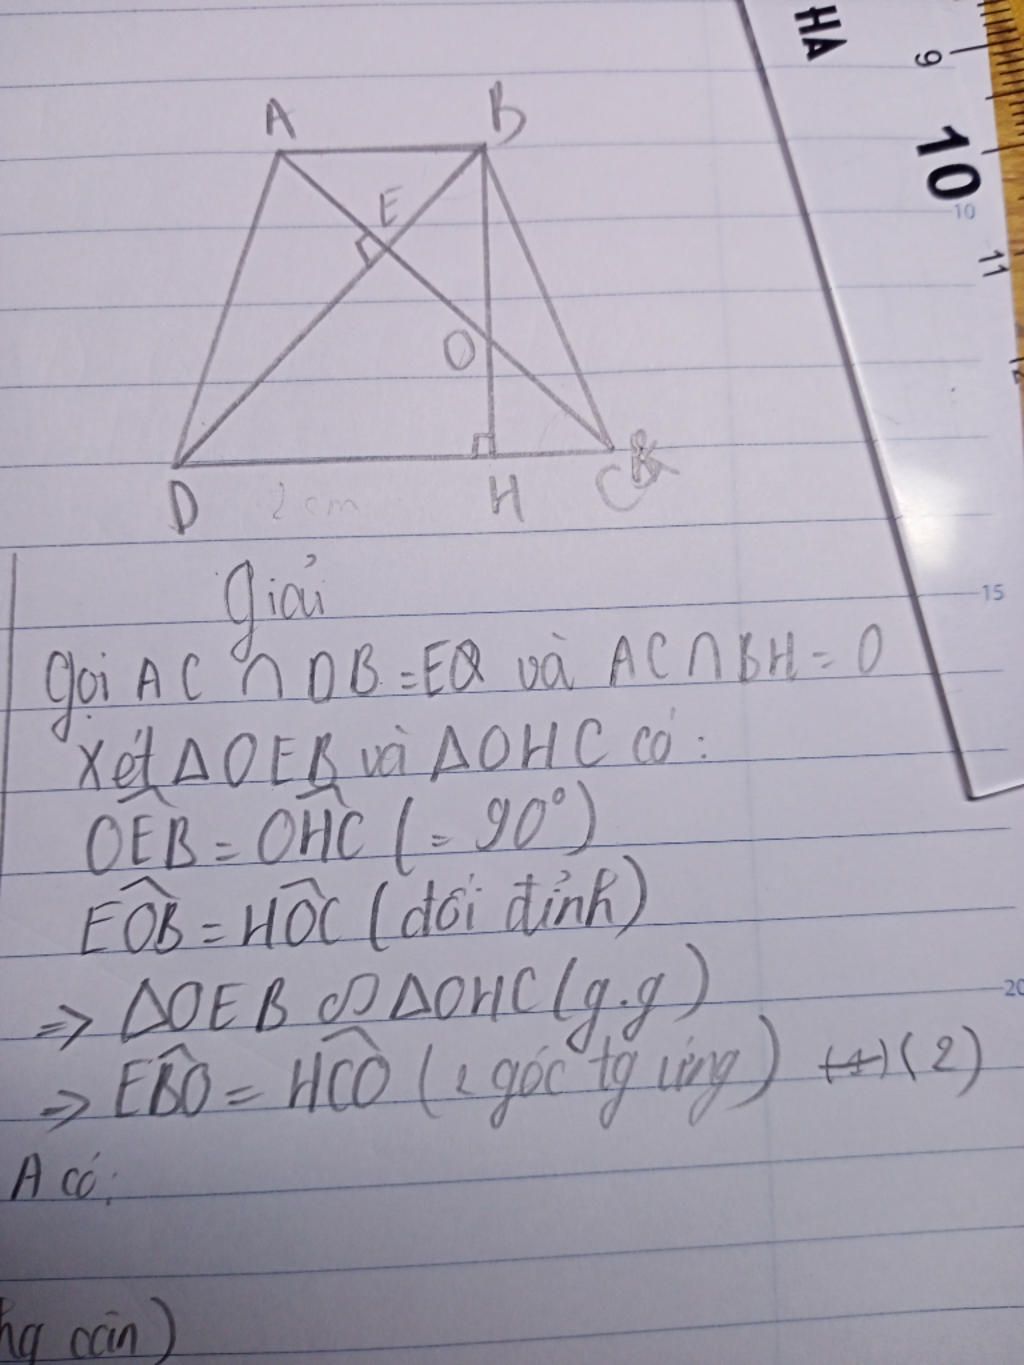 HA
9
10
10
11
12
A
B
E
O
D
2 cm
H
C
15
Giải
Gọi AC ∩ DB = E và AC ∩ BH = O
Xét ΔOEB và ΔOHC có:
OEB̂ = OHĈ (= 90°)
EOB̂ = HOĈ (đối đỉnh)
=> ΔOEB ∽ ΔOHC (g.g)
20
=> EBÔ = HCÔ (2 góc tg ứng) (2)
A có:
ng cân)